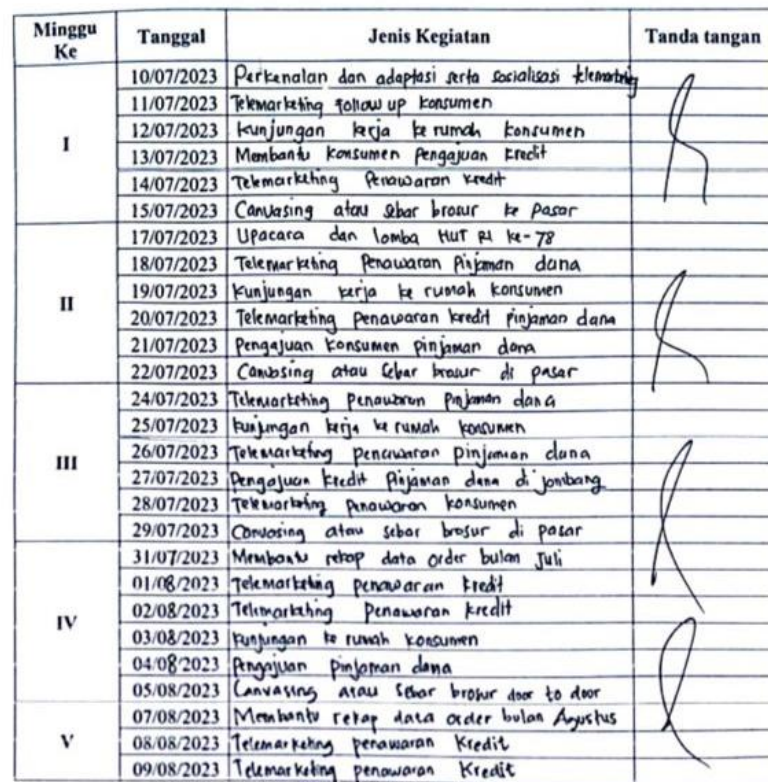 Minggu Ke Tanggal Jenis Kegiatan Tanda tangan
I
10/07/2023 Perkenalan dan adaptasi serta socialisasi telemarketing
11/07/2023 Telemarketing follow up konsumen
12/07/2023 kunjungan kerja ke rumah konsumen
13/07/2023 Membantu konsumen pengajuan kredit
14/07/2023 Telemarketing Penawaran kredit
15/07/2023 Canvasing atau sebar brosur ke pasar
II
17/07/2023 Upacara dan lomba HUT RI ke-78
18/07/2023 Telemarketing Penawaran Pinjaman dana
19/07/2023 kunjungan kerja ke rumah konsumen
20/07/2023 Telemarketing penawaran kredit pinjaman dana
21/07/2023 Pengajuan konsumen pinjaman dana
22/07/2023 Canvasing atau sebar brosur di pasar
III
24/07/2023 Telemarketing penawaran pinjaman dana
25/07/2023 kunjungan kerja ke rumah konsumen
26/07/2023 Telemarketing penawaran pinjaman dana
27/07/2023 Pengajuan kredit Pinjaman dana di jombang
28/07/2023 Telemarketing penawaran konsumen
29/07/2023 Canvasing atau sebar brosur di pasar
IV
31/07/2023 Membantu rekap data order bulan Juli
01/08/2023 Telemarketing penawaran kredit
02/08/2023 Telemarketing penawaran kredit
03/08/2023 kunjungan ke rumah konsumen
04/08/2023 Pengajuan pinjaman dana
05/08/2023 Canvasing atau sebar brosur door to door
V
07/08/2023 Membantu rekap data order bulan Agustus
08/08/2023 Telemarketing penawaran Kredit
09/08/2023 Telemarketing penawaran Kredit